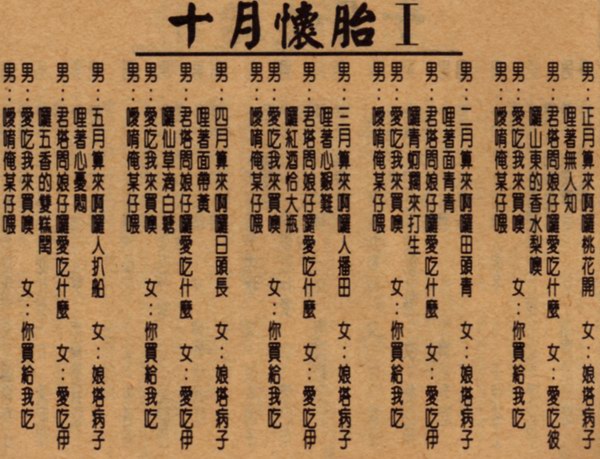 十月懷胎Ⅰ
男：正月算來啊囉桃花開　女：娘塔病子
哩著無人知
男：君塔問娘仔囉愛吃什麼　女：愛吃彼
囉山東的香水梨噢
男：愛吃我來買噢　女：你買給我吃
男：噯唷俺某仔喂
男：二月算來啊囉田頭青　女：娘塔病子
哩著面青青
男：君塔問娘仔囉愛吃什麼　女：愛吃伊
囉青蚵來打生
男：愛吃我來買噢　女：你買給我吃
男：噯唷俺某仔喂
男：三月算來啊囉人播田　女：娘塔病子
哩著心艱難
男：君塔問娘仔囉愛吃什麼　女：愛吃伊
囉紅酒恰大瓶
男：愛吃我來買噢　女：你買給我吃
男：噯唷俺某仔喂
男：四月算來啊囉日頭長　女：娘塔病子
哩著面帶黃
男：君塔問娘仔囉愛吃什麼　女：愛吃伊
囉仙草滴白糖
男：愛吃我來買噢　女：你買給我吃
男：噯唷俺某仔喂
男：五月算來啊囉人扒船　女：娘塔病子
哩著心憂悶
男：君塔問娘仔囉愛吃什麼　女：愛吃伊
囉五香的雙糕閏
男：愛吃我來買噢　女：你買給我吃
男：噯唷俺某仔喂